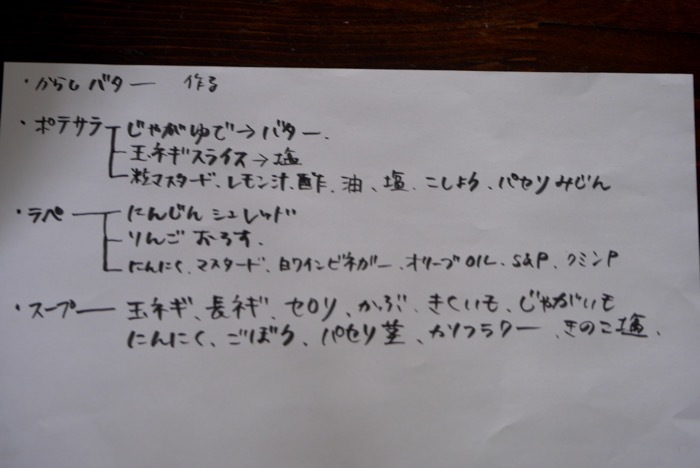 ・からしバター 作る
・ポテサラ じゃがゆで→バター.
玉ネギスライス→塩
粒マスタード、レモン汁、酢、油、塩、こしょう、パセリみじん
・ラペ にんじんシュレッド
りんごおろす.
にんにく、マスタード、白ワインビネガー、オリーブOIL、S&P、クミンP
・スープ 玉ネギ、長ネギ、セロリ、かぶ、きくいも、じゃがいも
にんにく、ごぼう、パセリ茎、カリフラワー、きのこ塩、